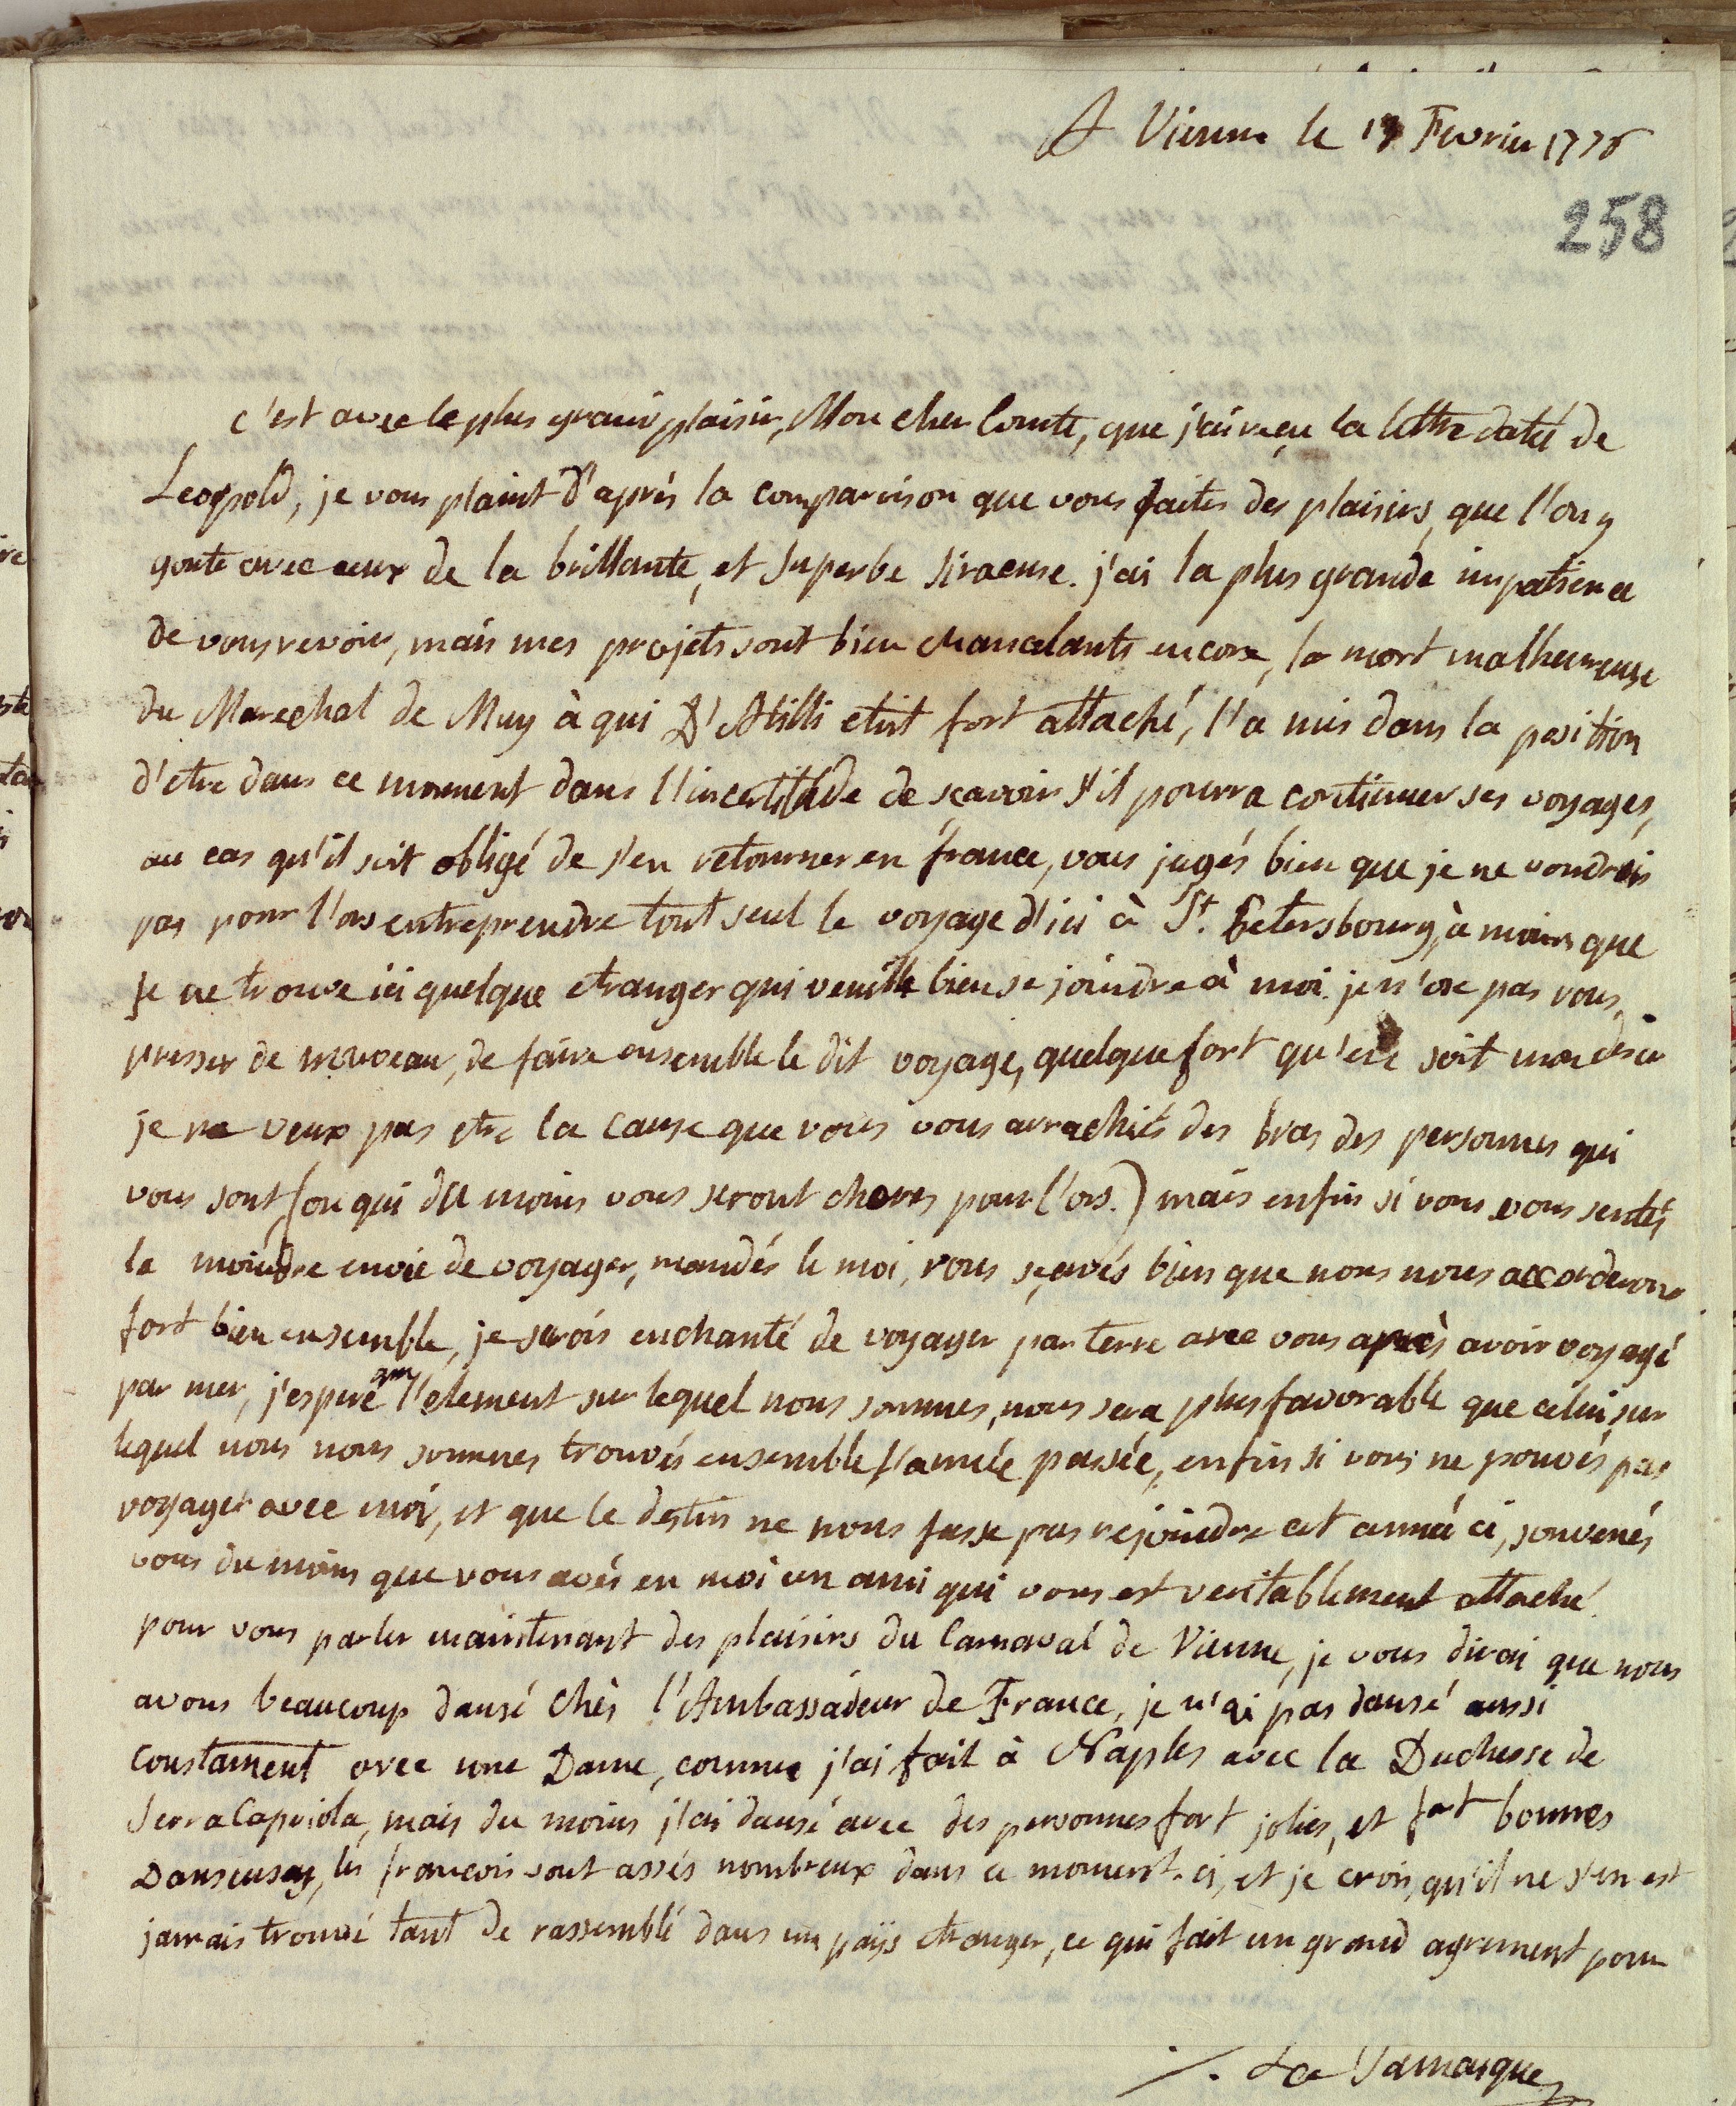 A Vienne le 13 Fevrier 1776
258
c'est avec le plus grand plaisir, Mon cher Comte, que j'ai reçu la lettre daté de
Leopold, je vous plaint d'après la comparaison que vous faites des plaisirs, que l'on y
goute avec ceux de la brillante, et superbe siracuse. j'ai la plus grande impatience
de vous revoir, mais mes projets sont bien chancelants encore, la mort malheureuse
du Marechal de Muy à qui D' etoit fort attaché, l'a mis dans la position
d'etre dans ce moment dans l'incertitude de sçavoir s'il pourra continuer ses voyages,
au cas qu'il soit obligé de s'en retourner en france, vous jugés bien que je ne voudrois
pas pour l'ors entreprendre tout seul le voyage d'ici à St. Petersbourg, à moins que
je ne trouve ici quelque etranger qui veuille bien se joindre à moi. je n'ose pas vous
presser de nouveau, de faire ensemble le dit voyage, quelque fort qu'en soit mon desir
je ne veux pas etre la cause que vous vous arrachiés des bras des personnes qui
vous sont (ou qui du moins vous seront cheres pour l'ors.) mais enfin si vous vous sentés
la moindre envie de voyager, mandés le moi, vous sçavés bien que nous nous accorderons
fort bien ensemble, je serois enchanté de voyager par terre avec vous après avoir voyagé
par mer, j'espere que l'element sur lequel nous sommes, nous sera plus favorable que celui, sur
lequel nous nous sommes trouvés ensemble l'année passée, enfin si vous ne pouvés pas
voyager avec moi, et que le destin ne nous fasse pas rejoindre cet anneé ci, souvenés
vous du moins que vous avés en moi un ami qui vous est veritablement attaché.
pour vous parler maintenant des plaisirs du Carnaval de Vienne, je vous dirai que nous
avons beaucoup dansé chés l'Ambassadeur de France, je n'ai pas dansé aussi
constament avec une Dame, comme j'ai fait à Naples avec la Duchesse de
Serra Capriola, mais du moins j'ai dansé avec des personnes fort jolies, et fort bonnes
Danseuses, les francois sont assés nombreux dans ce moment-ci, et je crois, qu'il ne s'en est
jamais trouvé tant de rassemblé dans un païs etranger, ce qui fait un grand agrement pour
./. La Tamarque